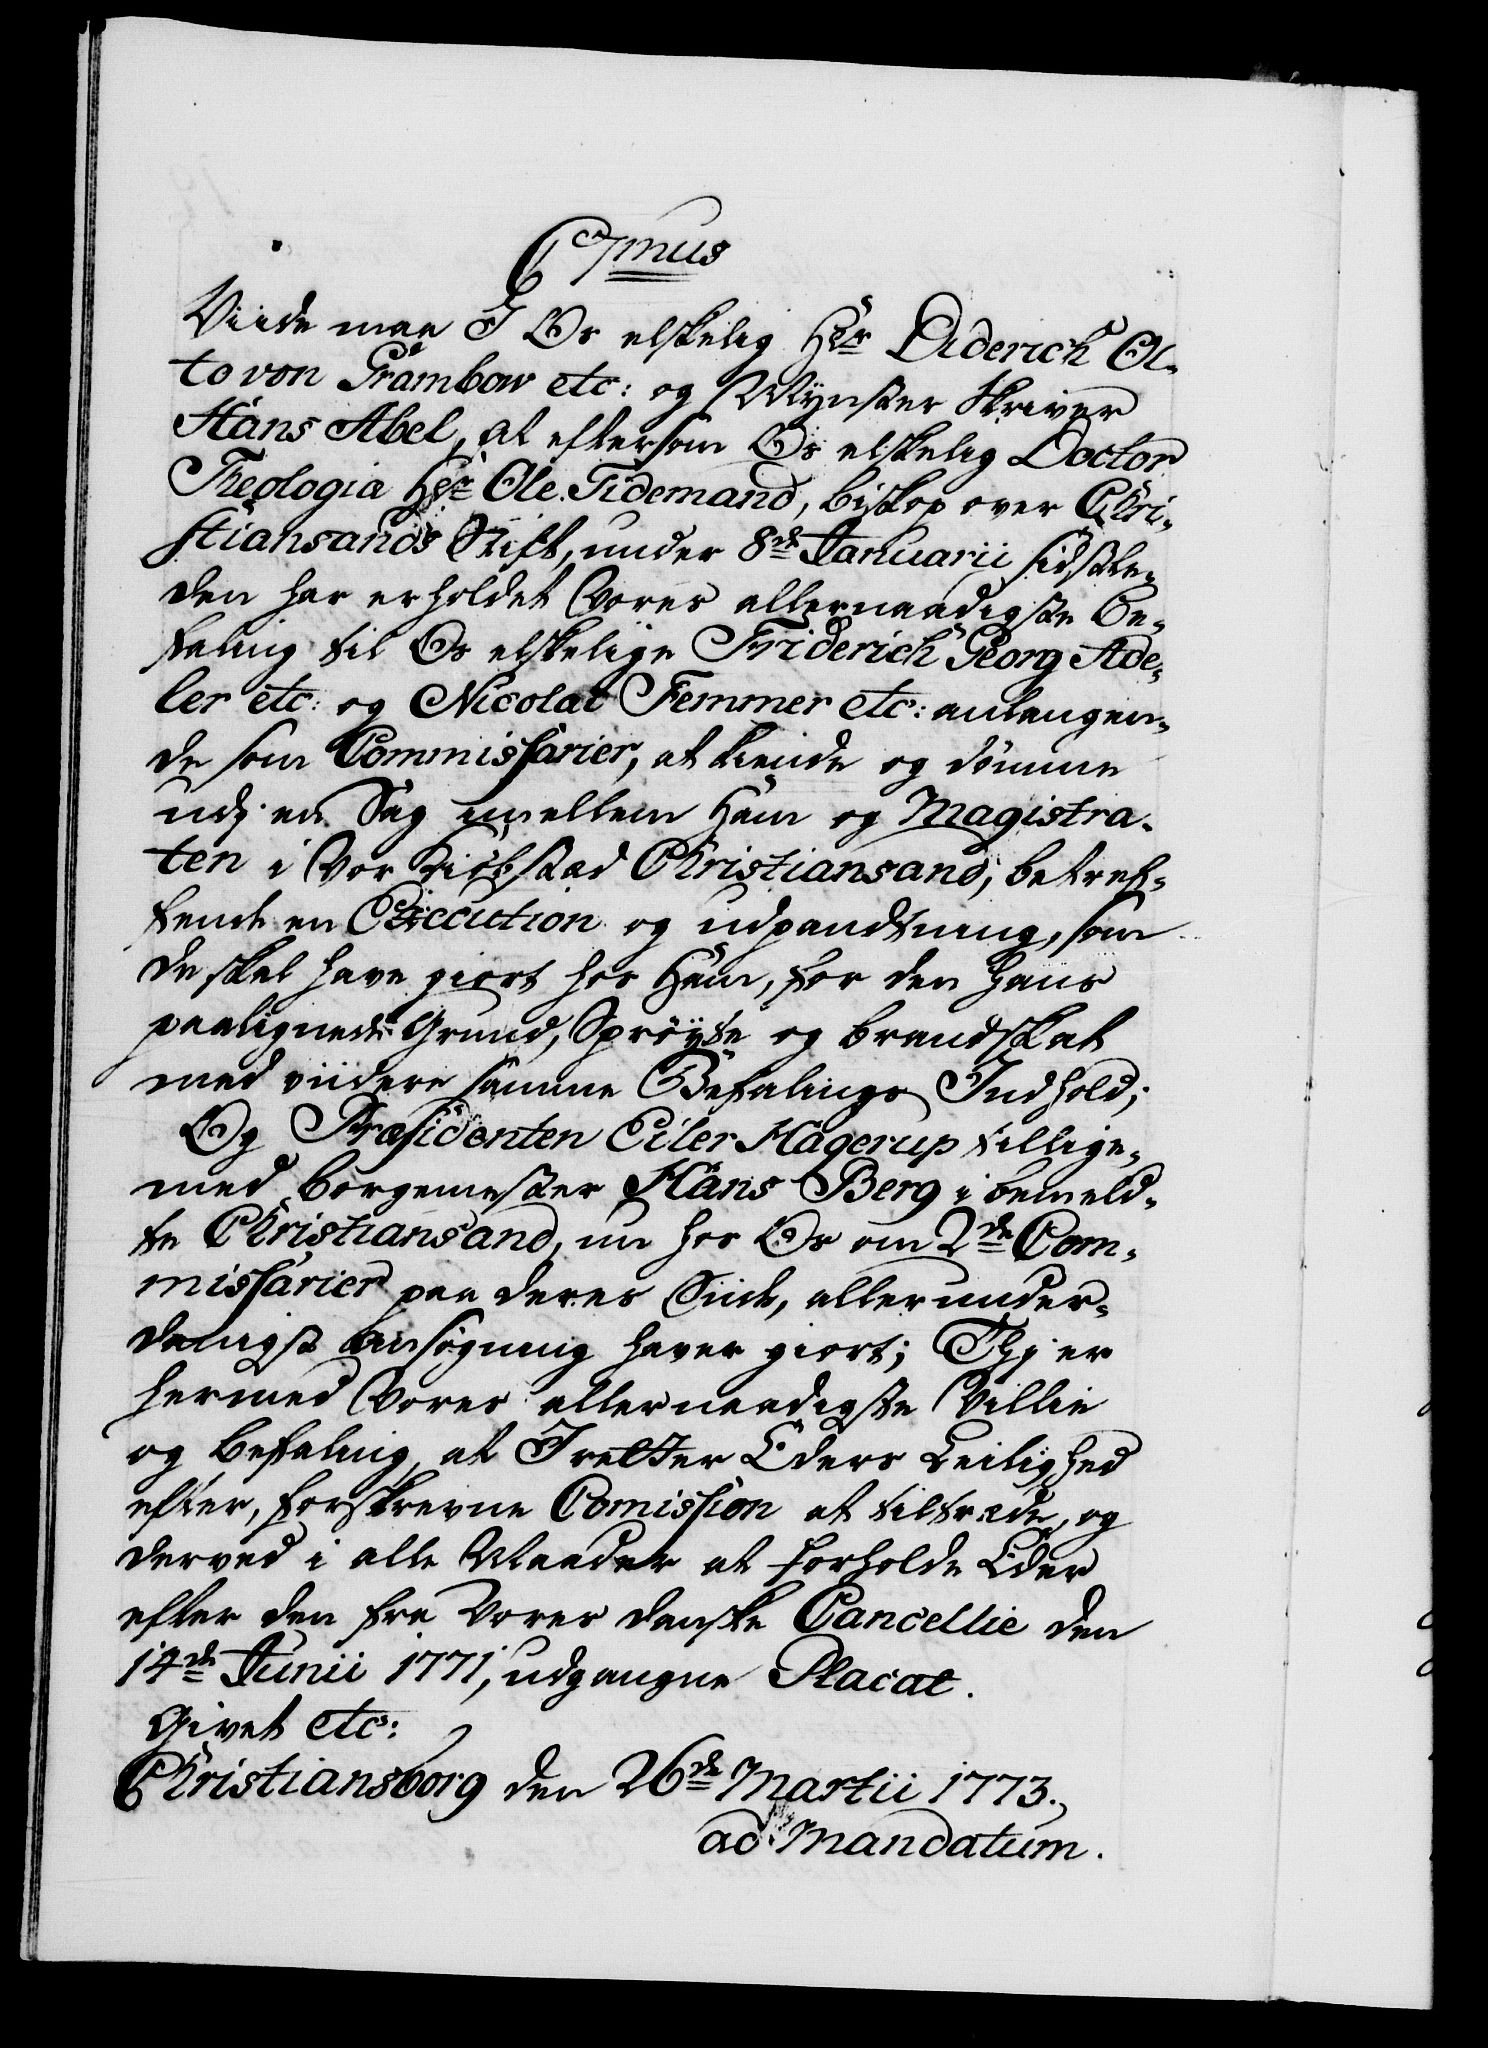 C7mus
Viide maa I Os elskelig Hr Diderich Ot-
to von Grambow etc: og Mynster Skriver
Hans Abel, at eftersom Os elskelig Doctor
Theologia Hr Ole Tidemand, biskop over Chri-
stiansands Stift, under 8de Januarii sidstle-
den har erholdet Vores allernaadigste be-
faling til Os elskelige Friderich Georg Ade-
ler etc: og Nicolai Femmer etc: anlangen-
de som Commissarier, at kiende og dömme
udj en Sag imellem Ham og Magistra-
ten i Vor Kiöbstad Christiansand, betref-
fende en Execution og udpandtning, som
de skal have giort hos Ham, for den Hans
paalignede Grund, Spröyte og brandskat
med viidere samme Befalings Indhold;
Og Præsidenten Eiler Hagerup tillige-
med borgemester Hans Berg i bemeld-
te Christiansand, nu hos Os om 2de Com-
missarier paa deres Siide, allerunder-
danigst ansögning haver giort; Thj er
hermed Vores allernaadigste Villie
og befaling, at I retter Eders Leilighed
efter, forskrevne Comission at tiltræde, og
derved i alle Maader at forholde Eder
efter den fra Vores danske Cancellie den
14de Junii 1771, udgangne Placat.
Givet etc:
Christiansborg den 26de Martii 1773.
ad Mandatum.